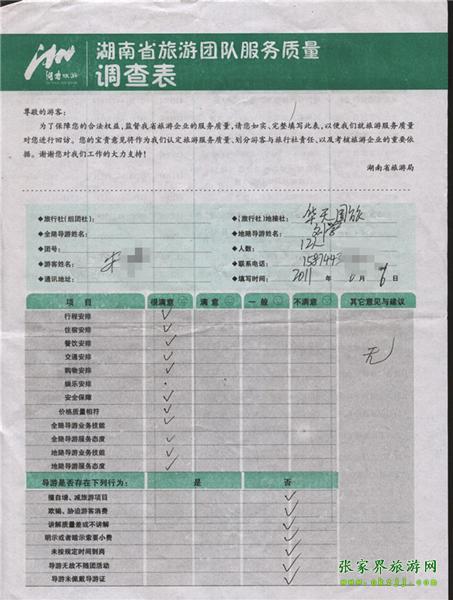 湖南旅游
湖南省旅游团队服务质量
调查表
尊敬的游客:
为了保障您的合法权益,监督我省旅游企业的服务质量,请您如实、完整填写此表,以便我们就旅游服务质量
对您进行回访。您的宝贵意见将作为我们认定旅游服务质量、划分游客与旅行社责任、以及考核旅游企业的重要依
据。谢谢您对我们工作的大力支持!
湖南省旅游局
◆旅行社(组团社): ◆(旅行社)地接社: 华天国旅
◆全陪导游姓名: ◆地陪导游姓名:
◆团号: ◆人数: 12人
◆游客姓名: 宋 ◆联系电话: 1587443
◆通讯地址: ◆填写时间: 2011 年 月 6 日
项 目 很满意 满 意 一 般 不满意 其它意见与建议
行程安排 ✓
住宿安排 ✓
餐饮安排 ✓ 无
交通安排 ✓
购物安排 ✓
娱乐安排
安全保障 ✓
价格质量相符 ✓
全陪导游业务技能 ✓
全陪导游服务态度 ✓
地陪导游业务技能 ✓
地陪导游服务态度 ✓
导游是否存在下列行为: 是 否
擅自增、减旅游项目 ✓
欺骗、胁迫游客消费 ✓
讲解质量差或不讲解 ✓
明示或者暗示索要小费 ✓
未按规定时间到岗 ✓
导游无故不随团活动 ✓
导游未佩戴导游证 ✓
张家界旅游网
www.okzjj.com